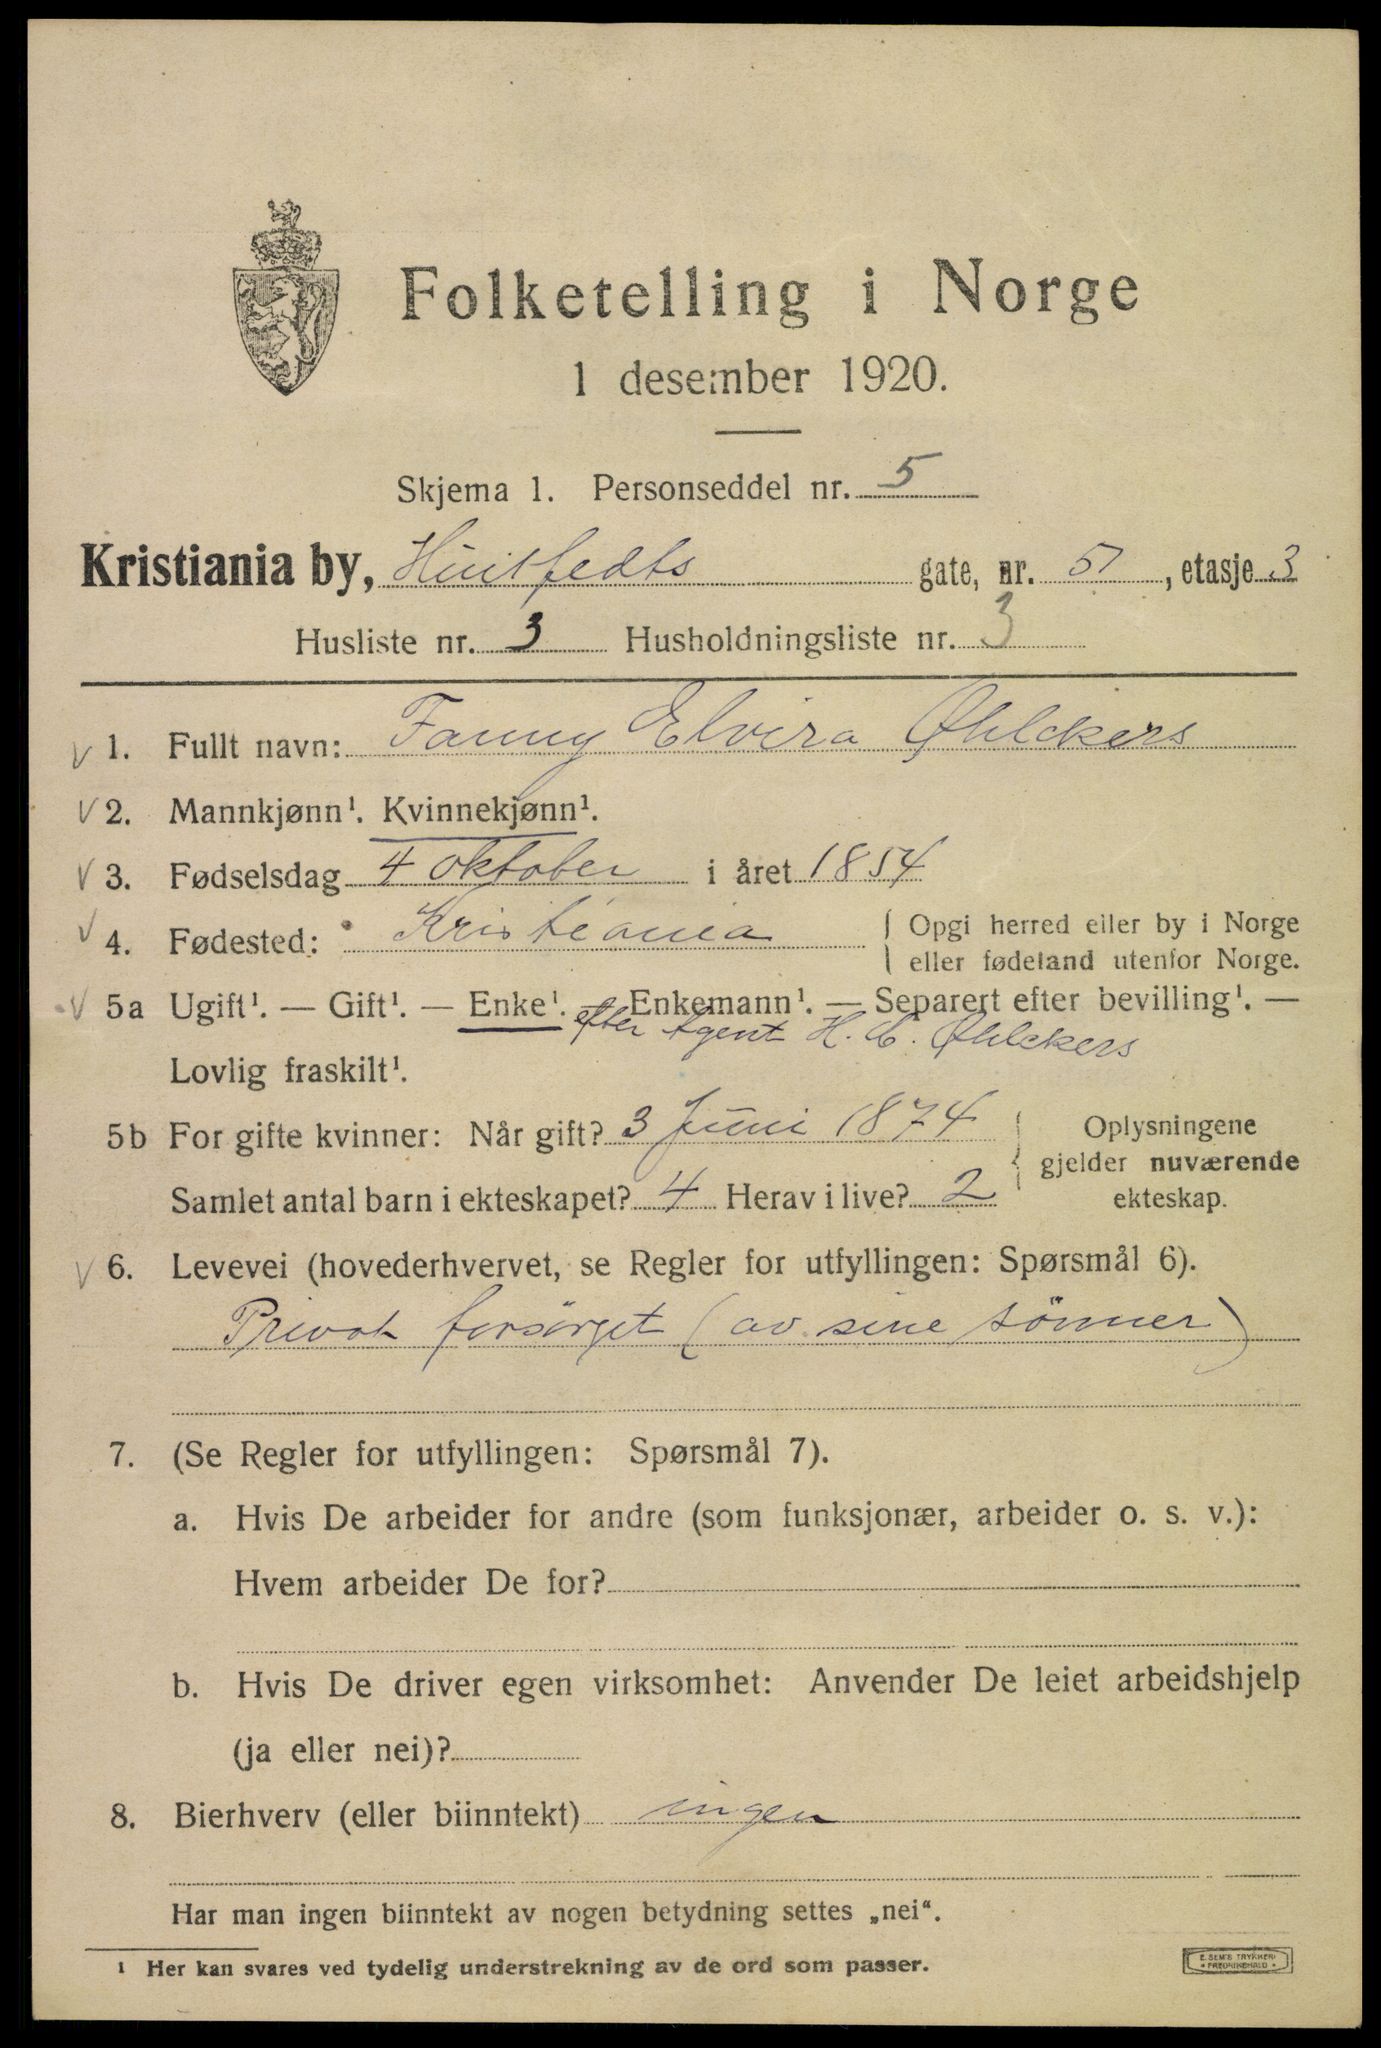 Folketelling i Norge
1 desember 1920.
Skjema 1. Personseddel nr. 5
Kristiania by, Huitfedts gate, nr. 51, etasje 3
Husliste nr. 3 Husholdningsliste nr. 3
√ 1. Fullt navn: Fanny Elvira Øhlckers
√ 2. Mannkjønn¹. Kvinnekjønn¹.
√ 3. Fødselsdag 4 oktober i året 1854
√ 4. Fødested: Kristiania { Opgi herred eller by i Norge
eller fødeland utenfor Norge.
√ 5a Ugift¹. — Gift¹. — Enke¹. — Enkemann¹. — Separert efter bevilling¹. —
efter Agent H. C. Øhlckers
Lovlig fraskilt¹.
5b For gifte kvinner: Når gift? 3 Juni 1874 { Oplysningene
gjelder nuværende
Samlet antal barn i ekteskapet? 4 Herav i live? 2 ekteskap.
√ 6. Levevei (hovederhvervet, se Regler for utfyllingen: Spørsmål 6).
Privat forsörget (av sine sönner)
7. (Se Regler for utfyllingen: Spørsmål 7).
a. Hvis De arbeider for andre (som funksjonær, arbeider o. s. v.):
Hvem arbeider De for?
b. Hvis De driver egen virksomhet: Anvender De leiet arbeidshjelp
(ja eller nei)?
8. Bierhverv (eller biinntekt) ingen
Har man ingen biinntekt av nogen betydning settes „nei“.
¹ Her kan svares ved tydelig understrekning av de ord som passer.
E. SEM'S TRYKKERI
• FREDRIKSHALD •